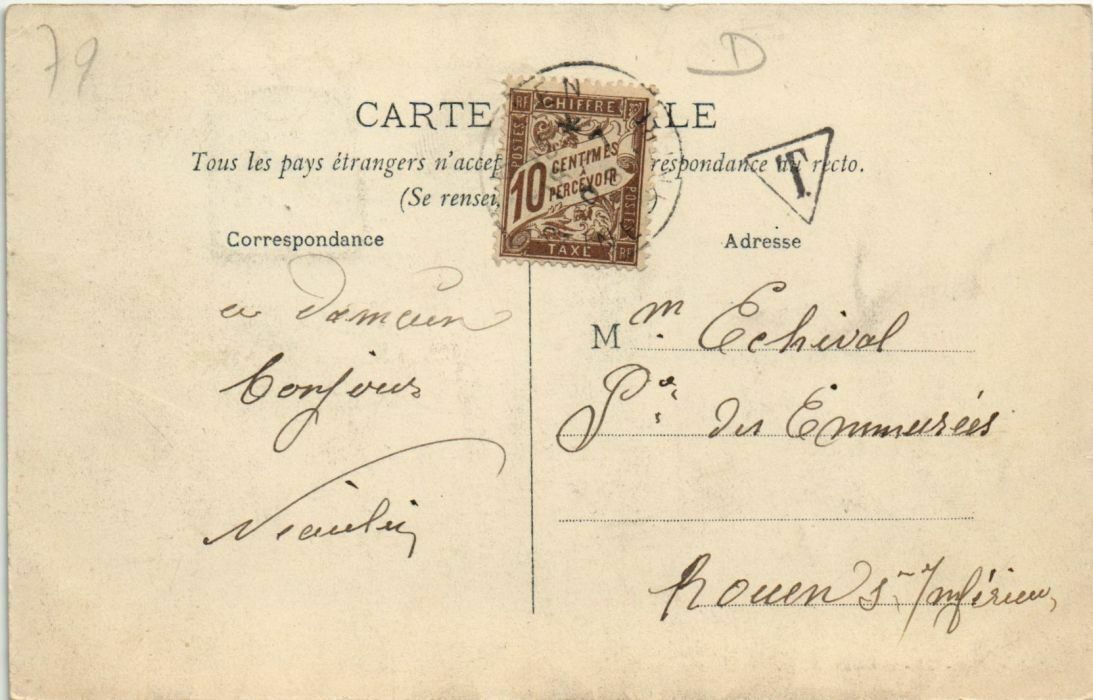 79
D
CARTE ALE
Tous les pays étrangers n'accep respondance au recto.
(Se rensei
RF CHIFFRE
POSTES
10 CENTIMES À PERCEVOIR
POSTES
TAXE RF
T.
Correspondance
Adresse
a demain
bonjour
M m. Echival
Pce des Emmurées
Rouen Sne Inférieu